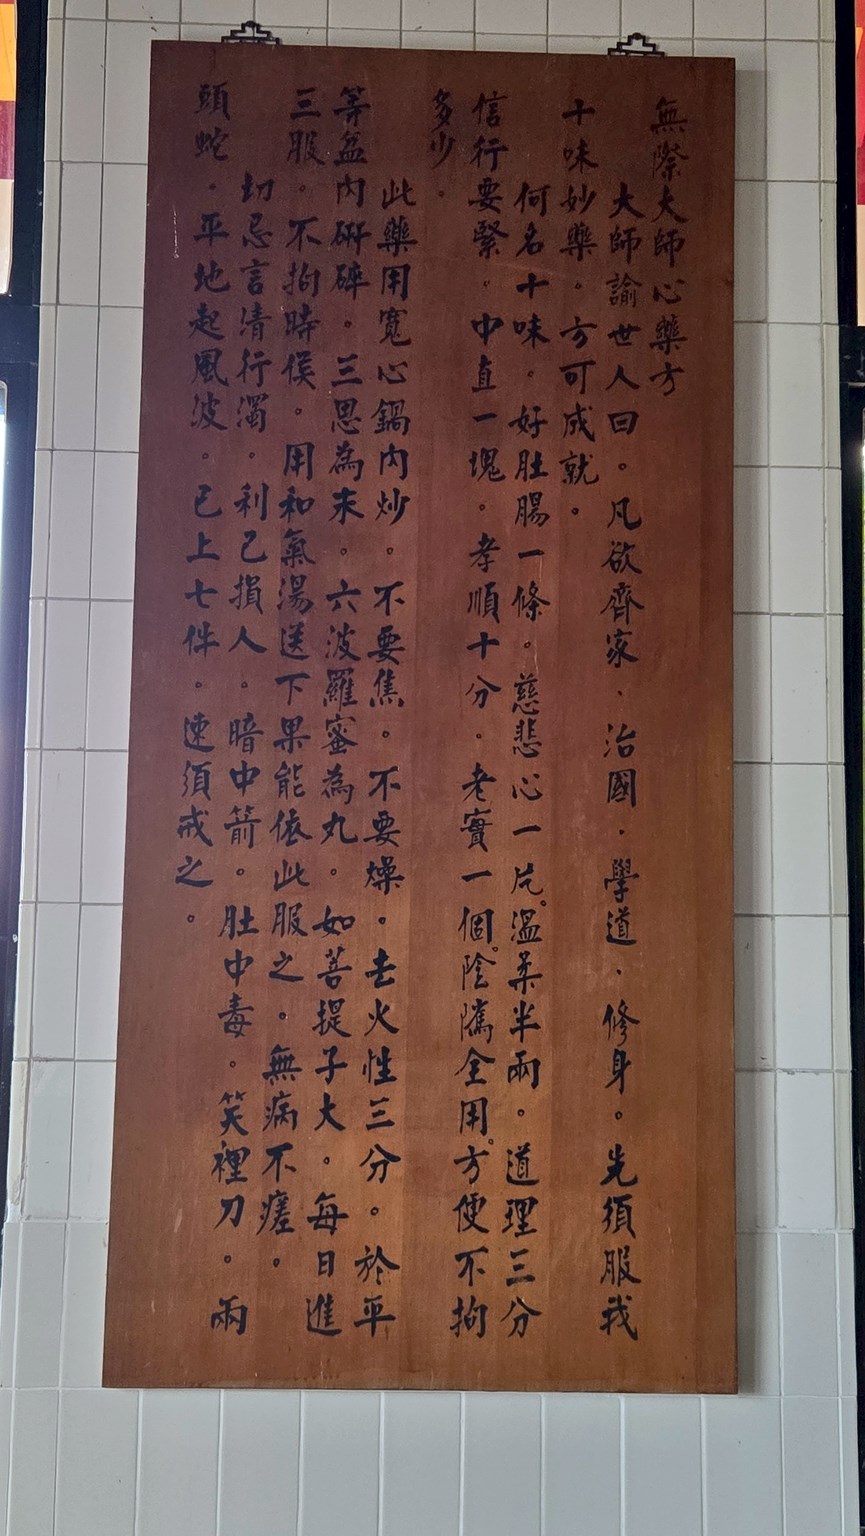 無際大師心藥方
大師諭世人曰。凡欲齊家、治國、學道、修身。先須服我
十味妙藥。方可成就。
何名十味。好肚腸一條。慈悲心一片。溫柔半兩。道理三分
信行要緊。中直一塊。孝順十分。老實一個。陰隲全用。方便不拘
多少。
此藥用寬心鍋內炒。不要焦。不要燥。去火性三分。於平
等盆內研碎。三思為末。六波羅蜜為丸。如菩提子大。每日進
三服。不拘時候。用和氣湯送下果能依此服之。無病不瘥。
切忌言清行濁。利己損人。暗中箭。肚中毒。笑裡刀。兩
頭蛇。平地起風波。已上七件。速須戒之。